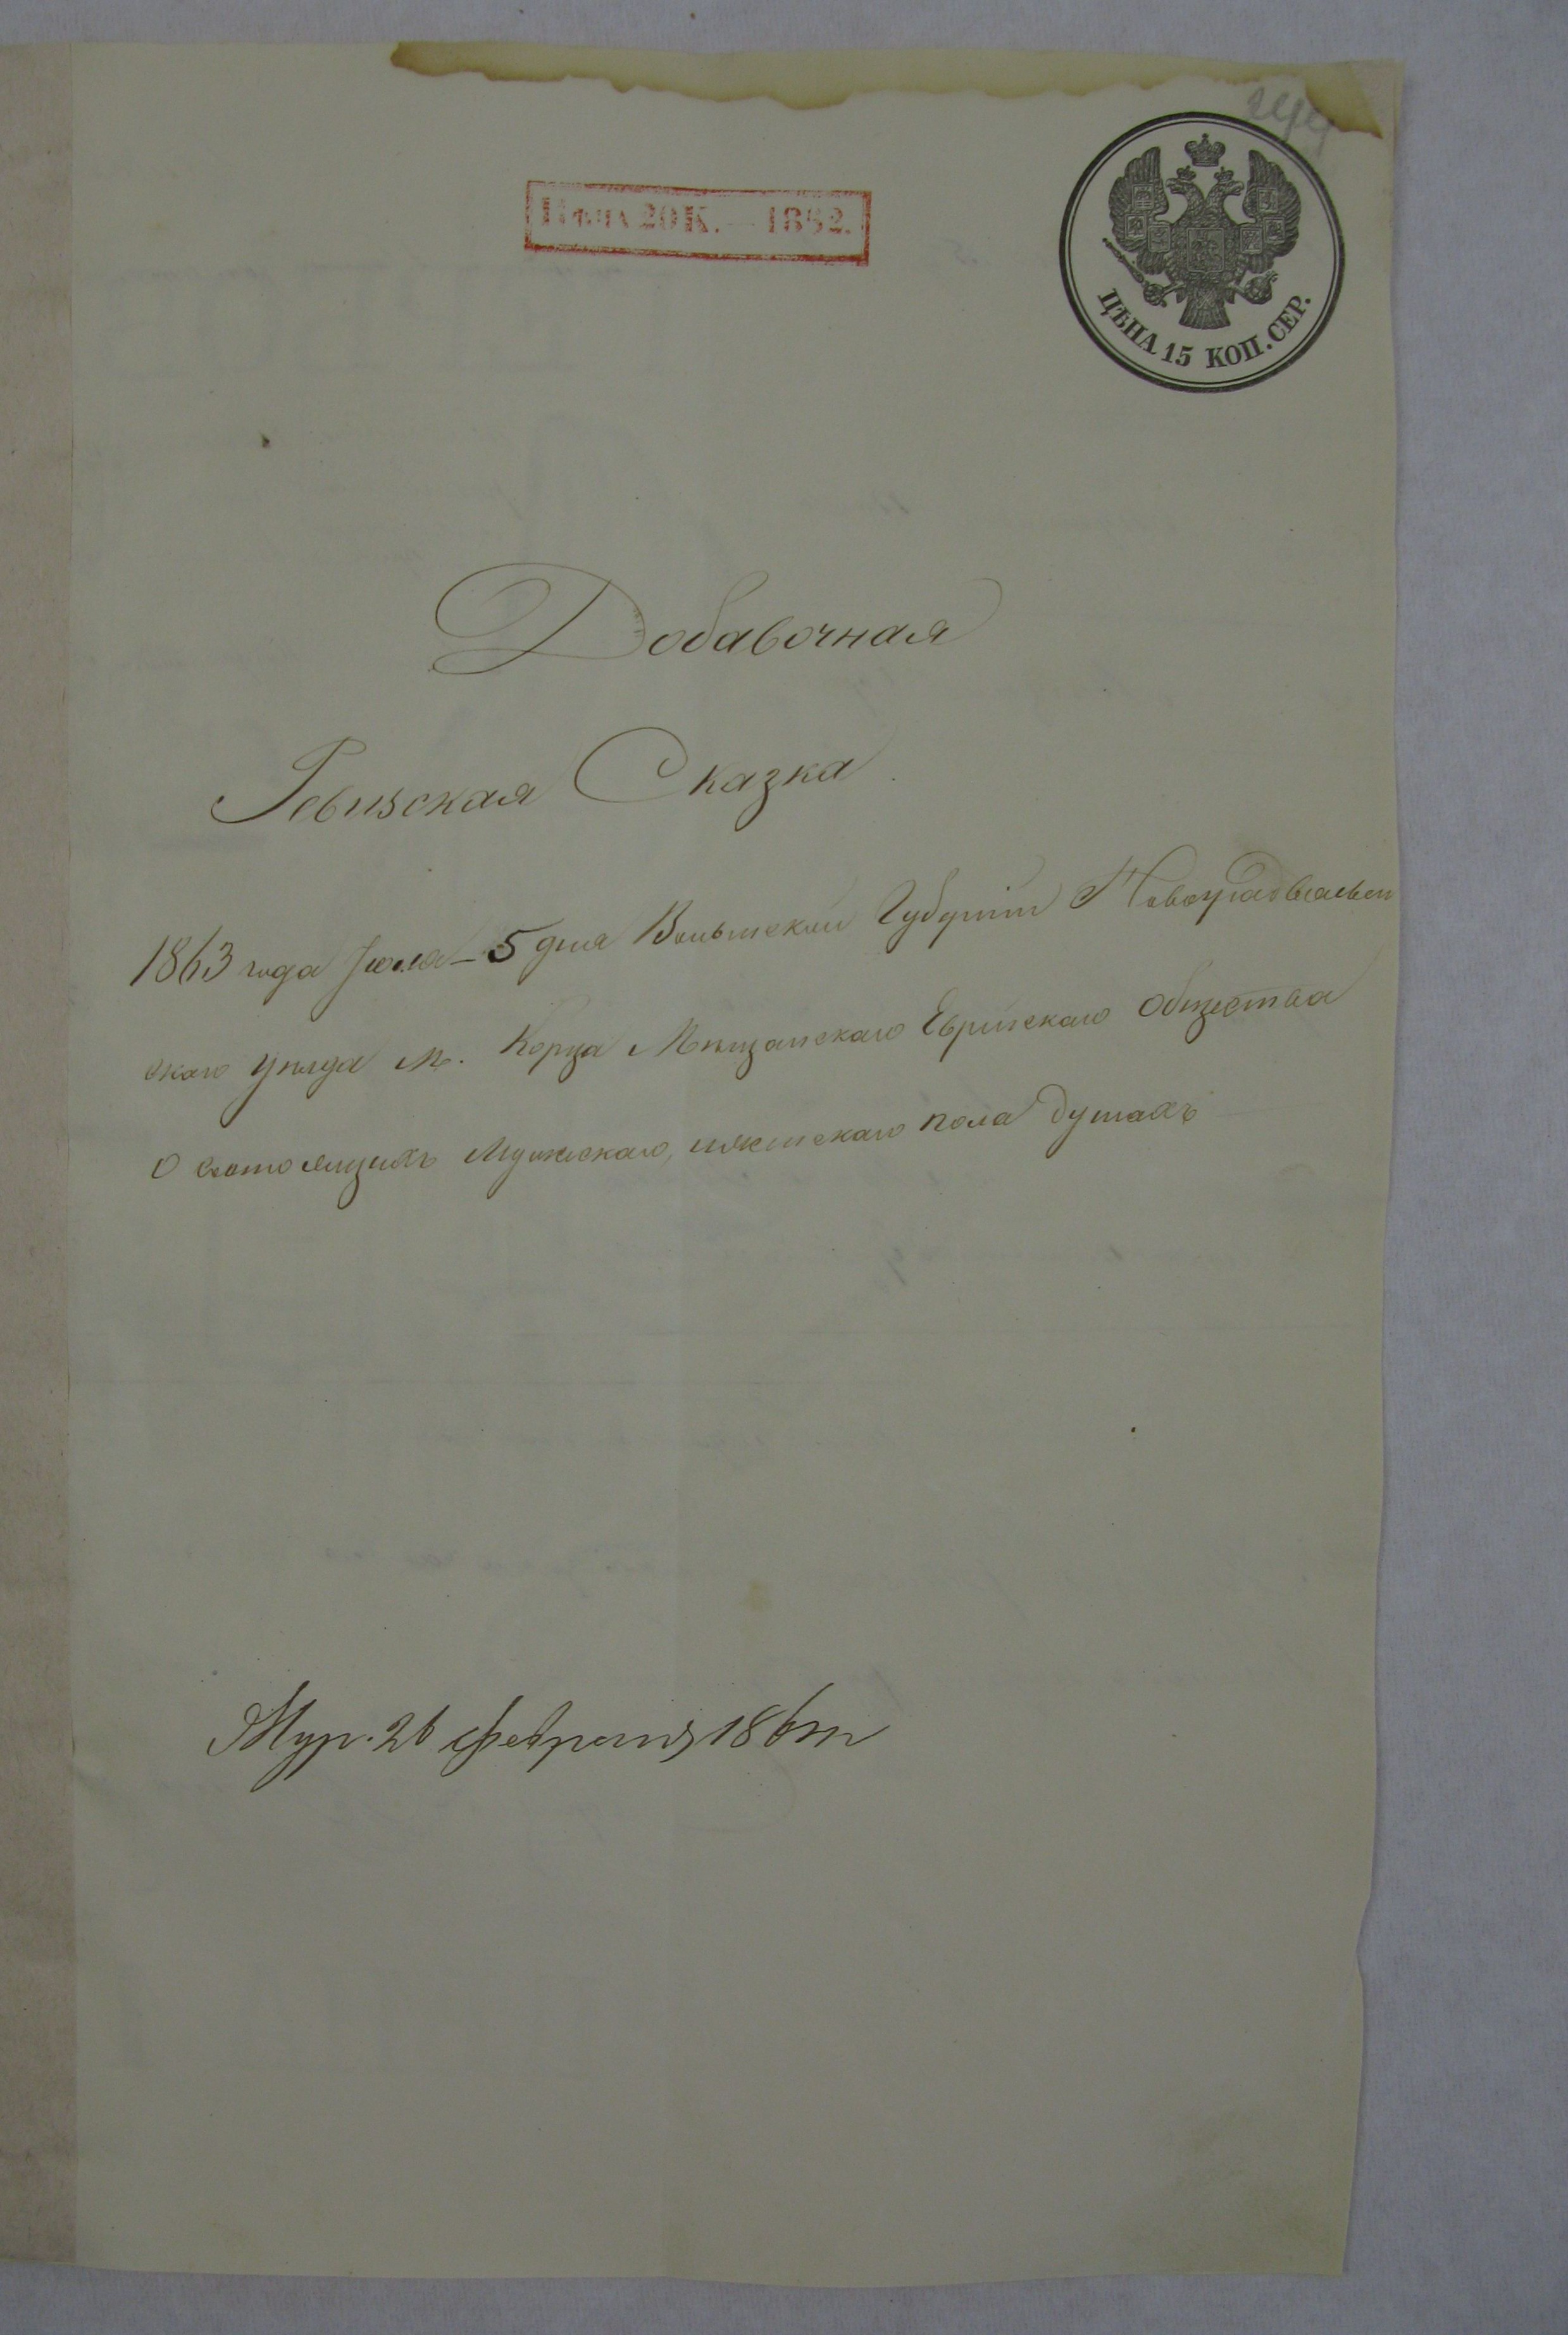 244
Цѣна 20 К. — 1862.
ЦѢНА 15 КОП. СЕР.
Добавочная
Ревизская Сказка
1863 года Іюля 5 дня Волынской Губерніи Новоградволын
скаго уѣзда м. Корца Мѣщанскаго Еврейскаго Общества
О состоящихъ Мужескаго, женскаго пола душахъ
26 февраля 186